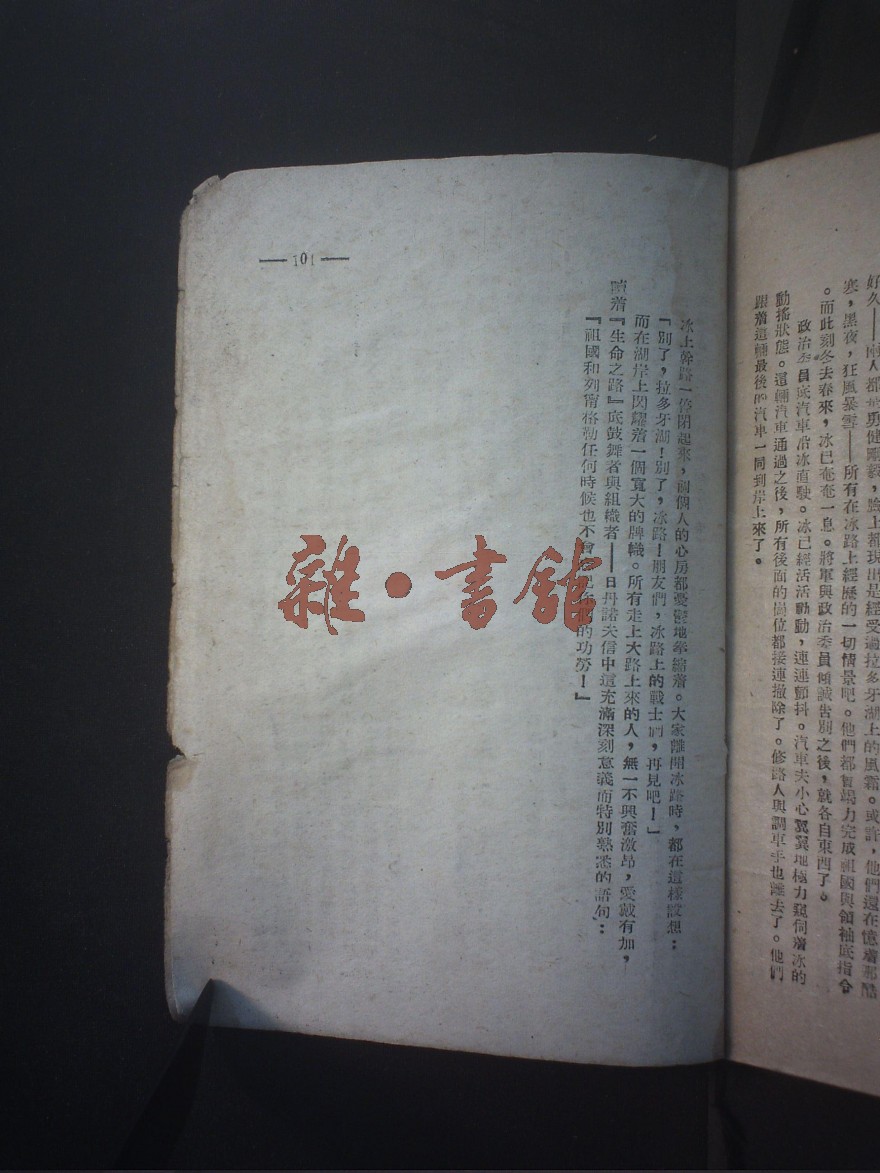 好久——兩人都是勇健剛毅，臉上都現出是經受過拉多牙湖上的風霜。或許，他們還在憶着那酷
寒，黑夜，狂風暴雪——所有在冰路上經歷的一切情景吧。他們都曾竭力完成祖國與領袖底指令
。而此刻冬去春來，冰已奄奄一息。將軍與政治委員傾誠告別之後，就各自東西了。
政治委員底汽車沿冰直駛。冰已經活活動動，連連顫抖。汽車夫小心翼翼地極力窺伺着冰的
動搖狀態。這輛汽車通過之後，所有後面的崗位都接連撤除了。修路人與調車手也離去了。他們
跟着這輛最後的汽車一同到岸上來了。
冰上幹路一停閉起來，個個人的心房都憂鬱地拳縮着。大家離開冰路時，都在這樣設想：
『別了，拉多牙湖！別了，冰路！朋友們，冰路上的戰士們，再見吧！』
而在湖岸上閃耀着一個寬大的牌幟。所有走上大路上來的人，無一不興奮激昂，愛戴有加，
讀着『生命之路』底鼓舞者與組織者——日丹諾夫信中這充滿深刻意義而特別熟悉的語句：
『祖國和列寧格勒任何時候也不會 們的功勞！』
— 101 —
雜·書館